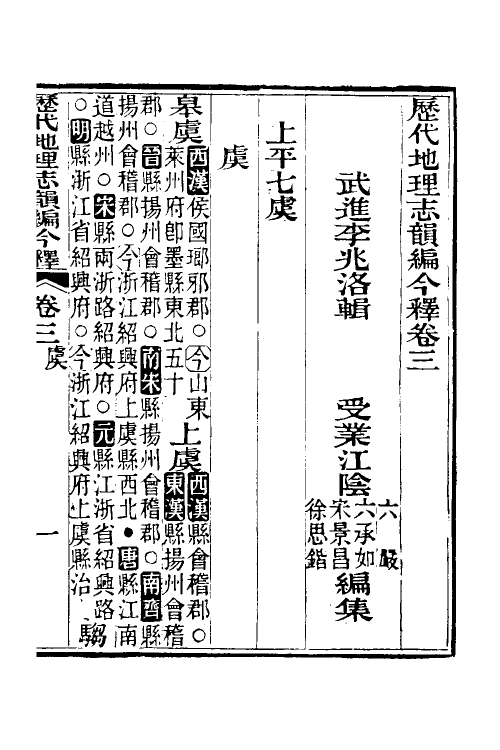 歷代地理志韻編今釋卷三
武進李兆洛輯 受業江陰
六嚴
六承如
宋景昌
徐思鍇
編集
上平七虞
虞
皋虞西漢侯國瑯邪郡○今山東
萊州府卽墨縣東北五十
上虞西漢縣會稽郡○
東漢縣揚州會稽
郡○晉縣揚州會稽郡○南宋縣揚州會稽郡○南齊縣
揚州會稽郡○今浙江紹興府上虞縣西北•唐縣江南
道越州○宋縣兩浙路紹興府○元縣江浙省紹興路
○明縣浙江省紹興府○今浙江紹興府上虞縣治 騶
歷代地理志韻編今釋 卷三 虞 一